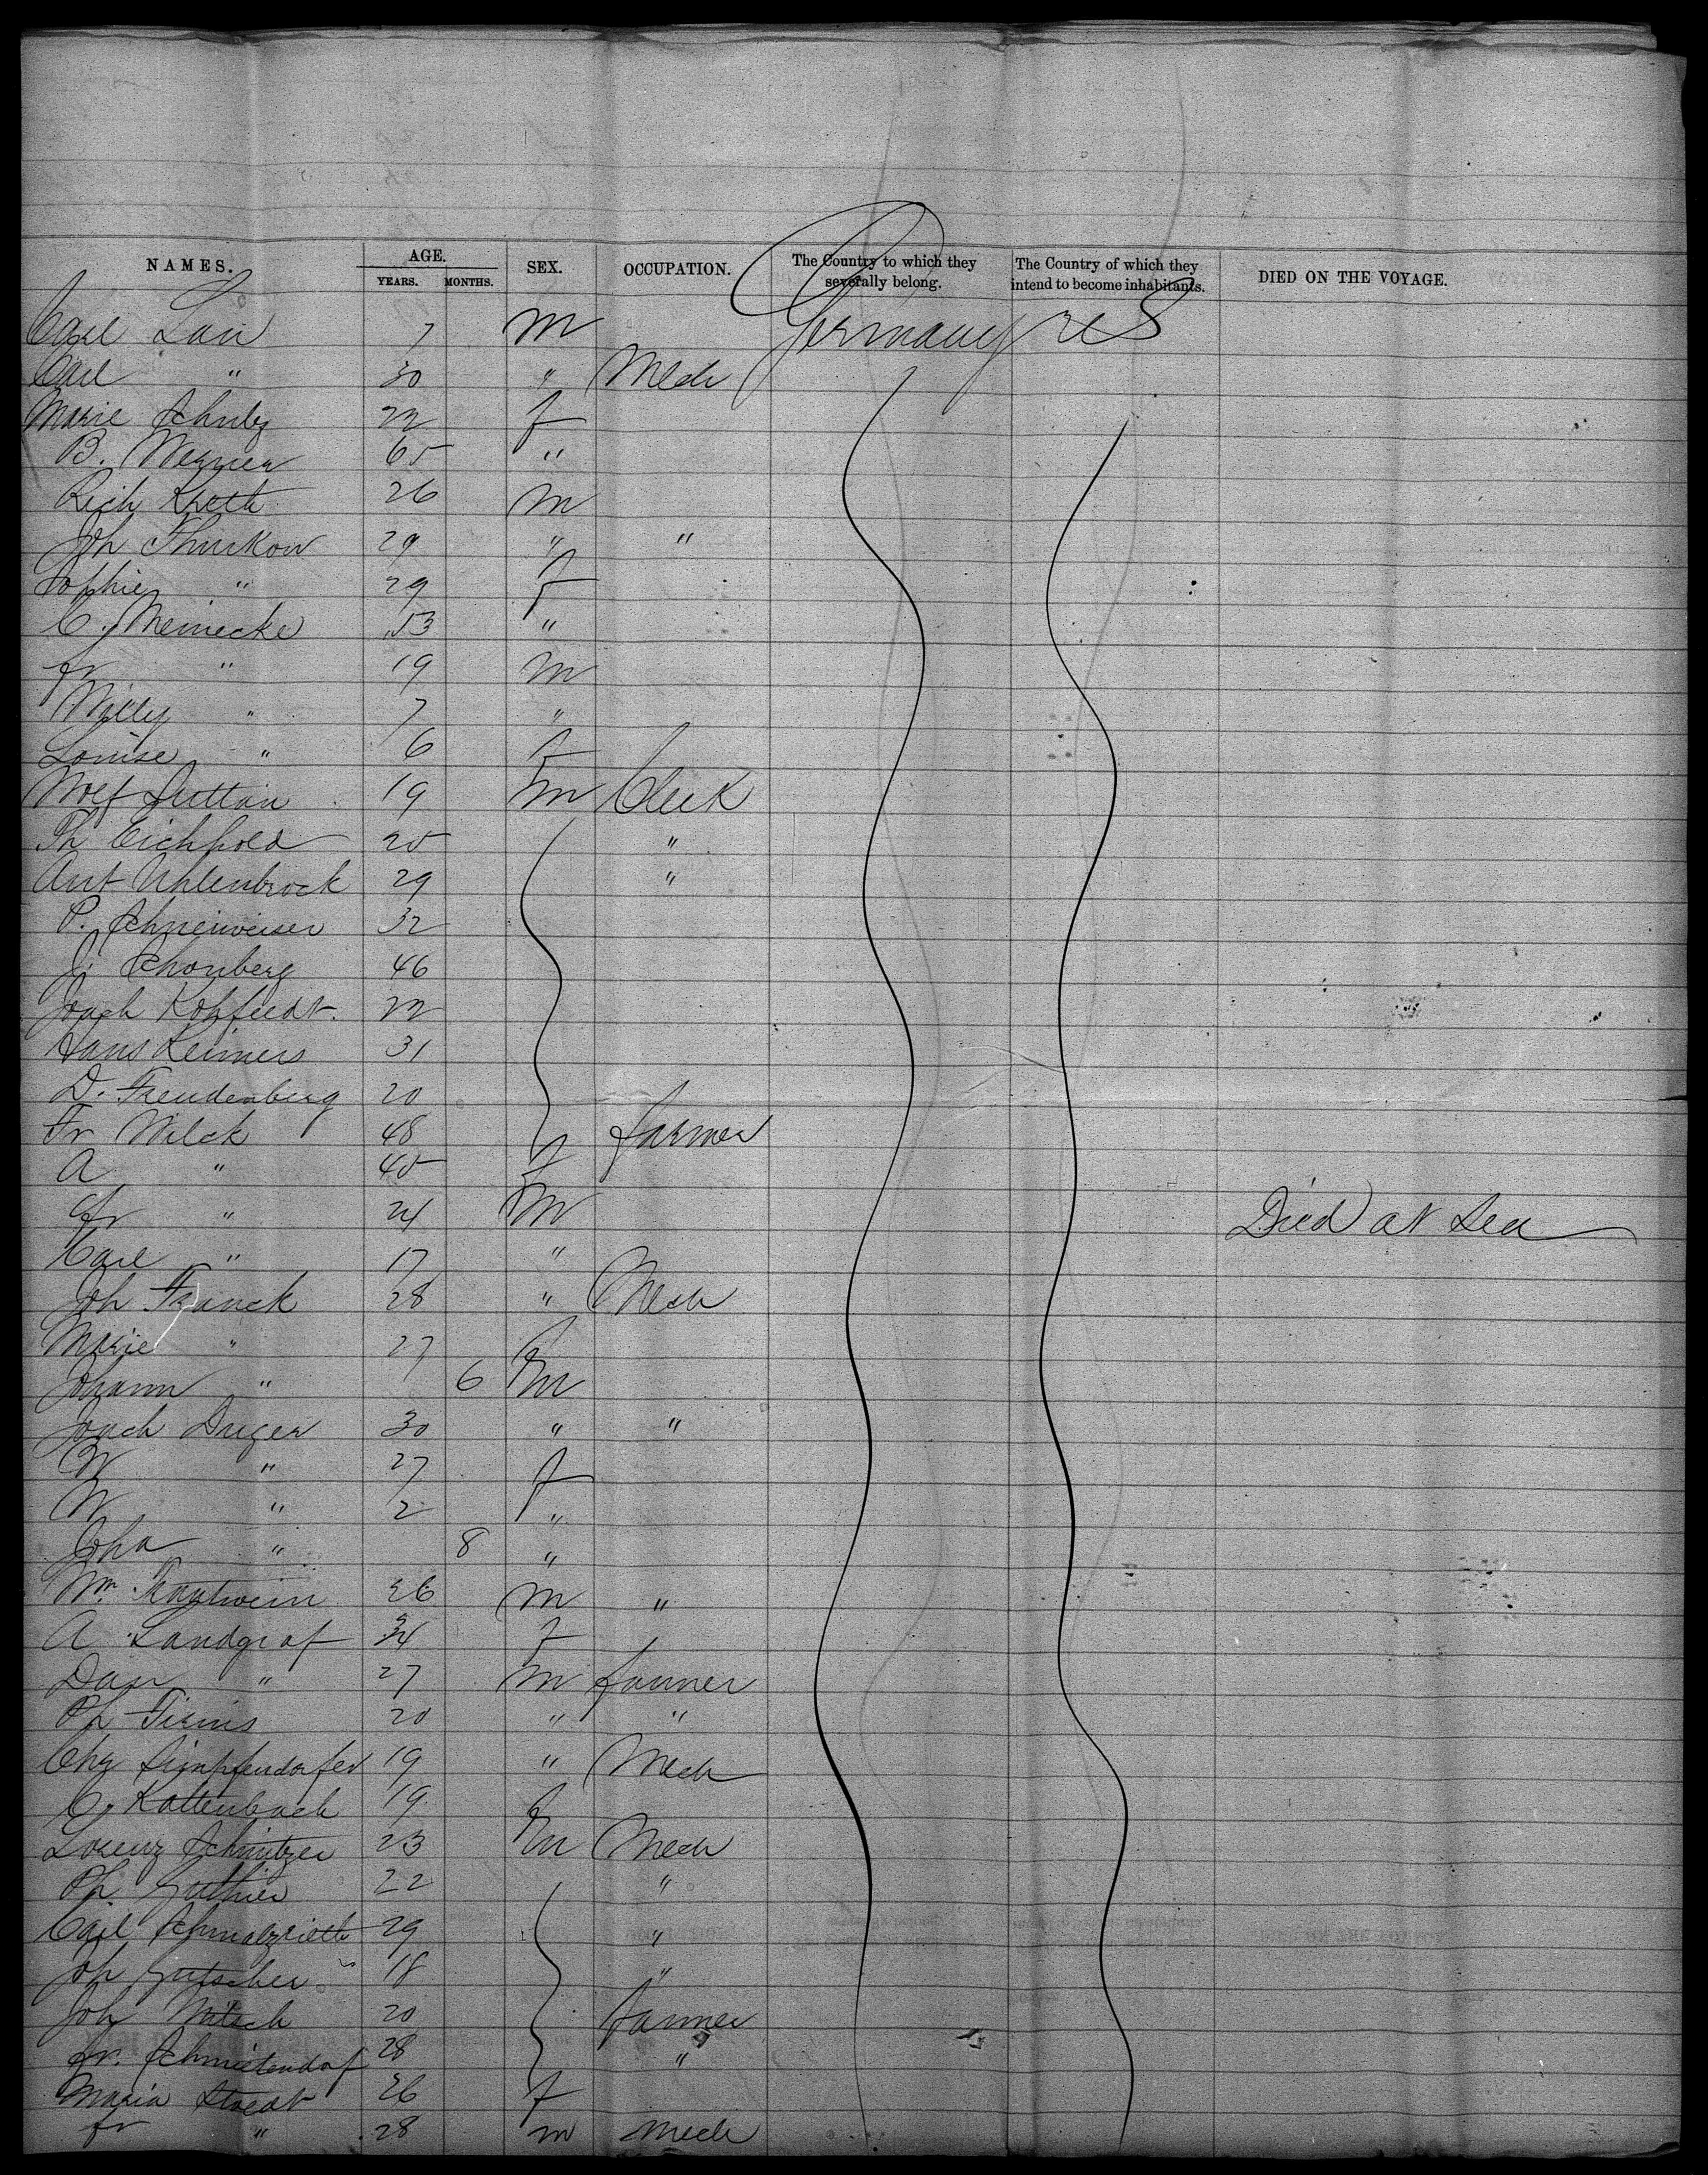 NAMES. AGE. YEARS. MONTHS. SEX. OCCUPATION. The Country to which they severally belong. The Country of which they intend to become inhabitants. DIED ON THE VOYAGE.
Carl Lau 7 m Germany US
Carl " 30 " Mech
Marie Schulz 22 f
B. Werner 65 "
Rich Kroth 26 m
Joh Thurkow 29 " "
Sophie " 29 f
C. Meinecke 53 "
fr " 19 m
Willy " 7 "
Louise " 6 f
Wolf Guttan 19 m Clerk
Th Eichhold 25 "
Ant Uhlenbrock 29 "
P. Schneiweiser 32
J. Schonberg 46
Joach Kohfeldt. 22
Hans Reimers 31
D. Freudenberg 20
Fr Wilck 48 farmer
A " 45 f
fr " 24 m Died at Sea
Carl " 17 "
Joh Franck 28 " Mech
Marie " 27 f
Johann " 6 m
Joach Druger 30 " "
W " 27 f
W " 2 "
Joha " 8 "
Wm. Trautwein 26 m "
A Landgraf 34 f
Dan " 27 m farmer
Ph Firnis 20 " "
Chr Simpfendorfer 19 " Mech
C. Kattenbach 19 f
Lorenz Schmitzer 23 m Mech
Ph. Guthier 22 "
Carl Schmalzrieth 29 "
Joh Gutscher 18 "
Joh Nitsch 20 farmer
fr. Schmietendorf 28 "
Maria Stoedt 26 f
fr " 28 m Mech